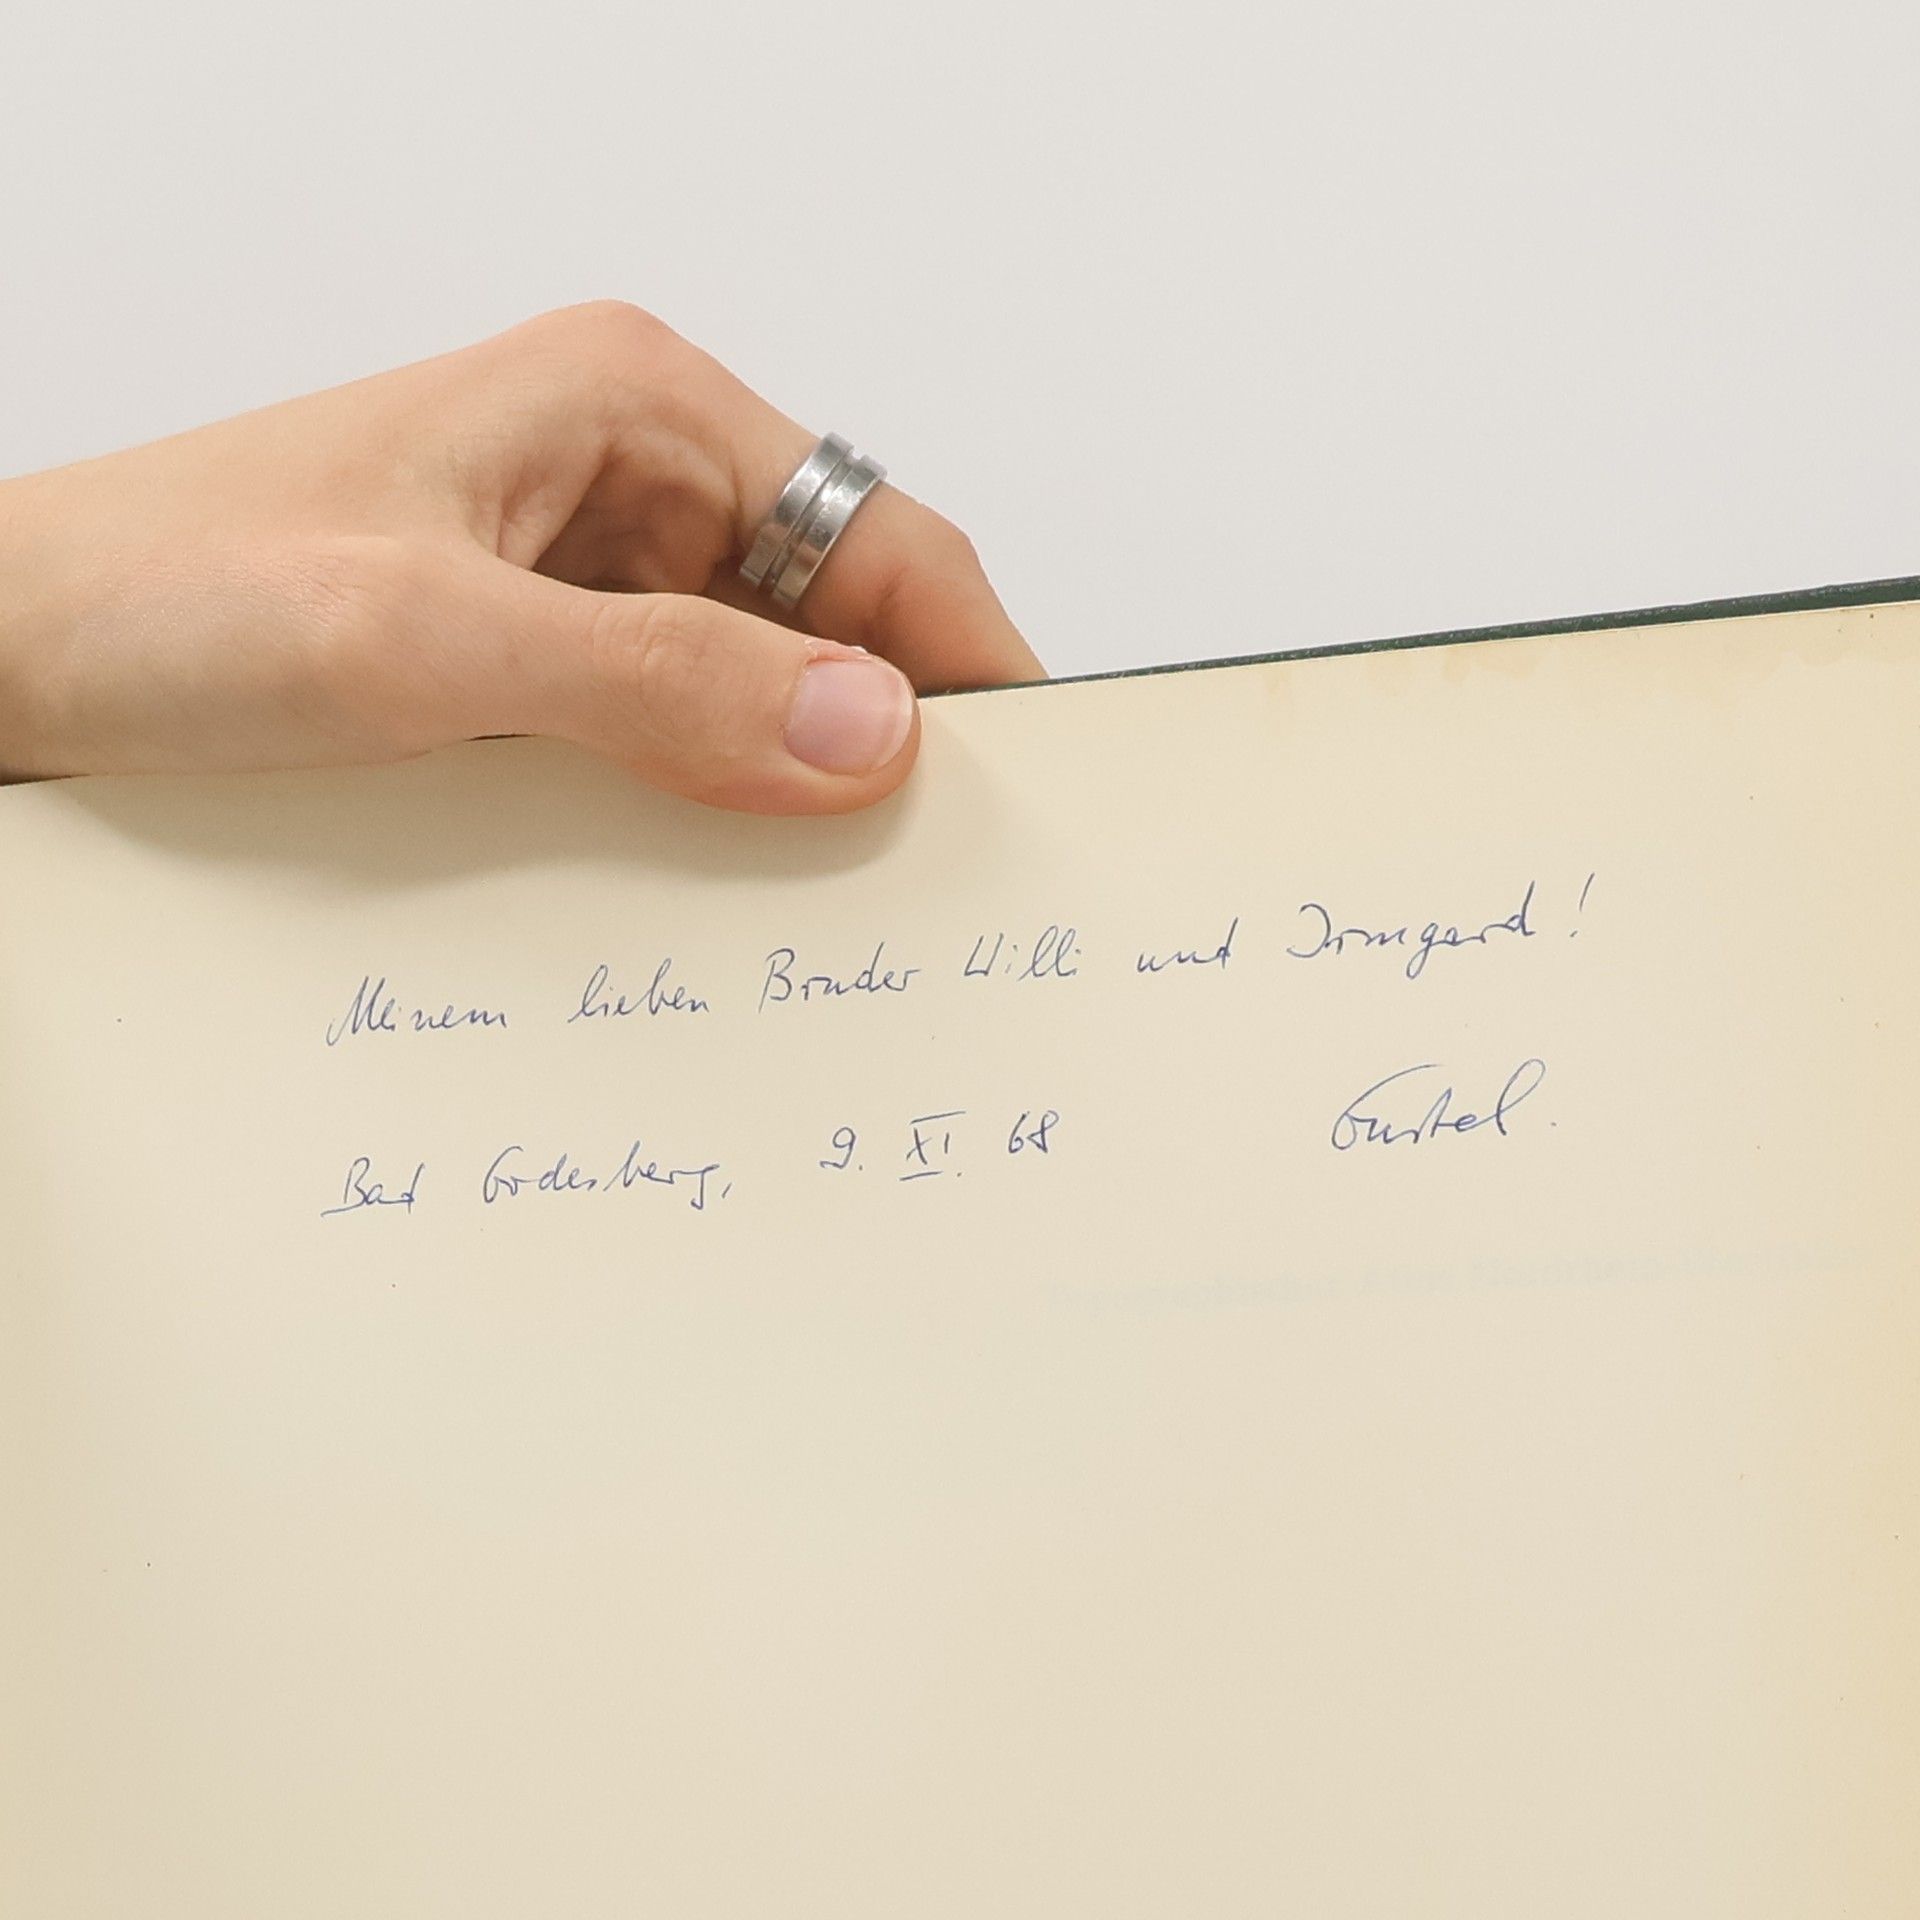 Meinem lieben Bruder Willi und Irmgard!
Bad Godesberg, 9. XI. 68 Gustel.